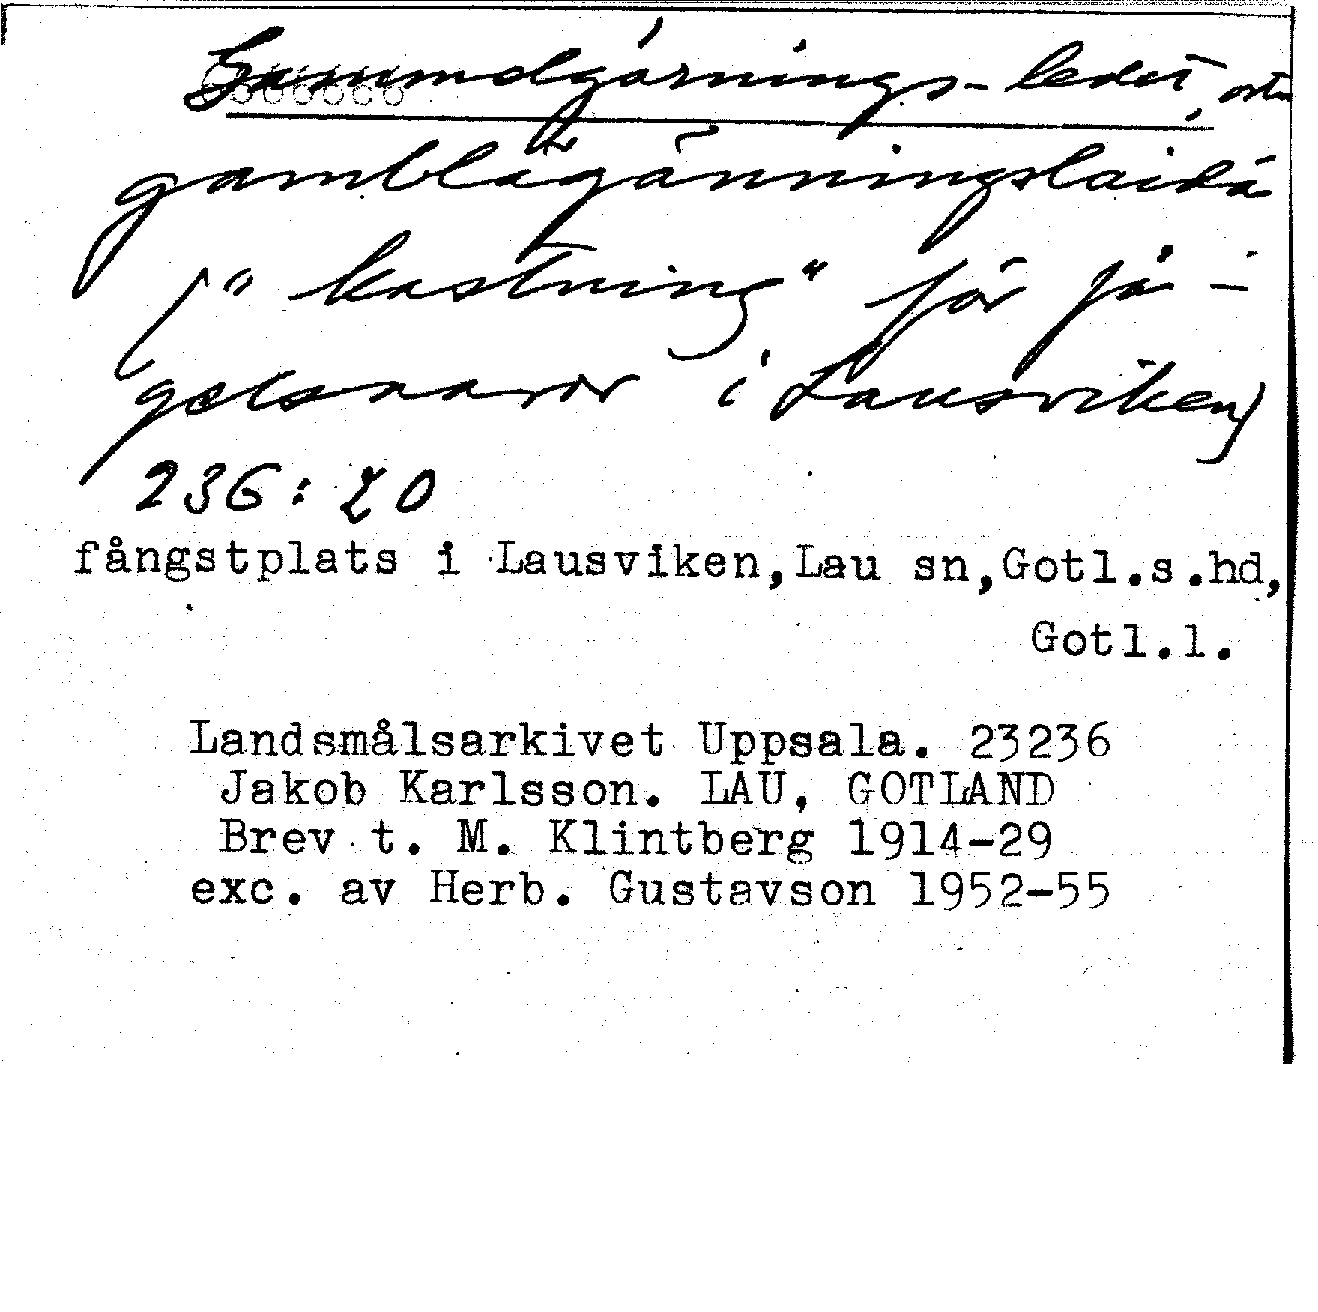 gärnings-ledet,
gamblägänningslaidä
("kastning" för få-
gelsnaror i Lausviken)
236:20
fångstplats i Lausviken,Lau sn,Gotl.s.hd,
Gotl.l.
Landsmålsarkivet Uppsala. 23236
Jakob Karlsson. LAU, GOTLAND
Brev t. M. Klintberg 1914-29
exc. av Herb. Gustavson 1952-55